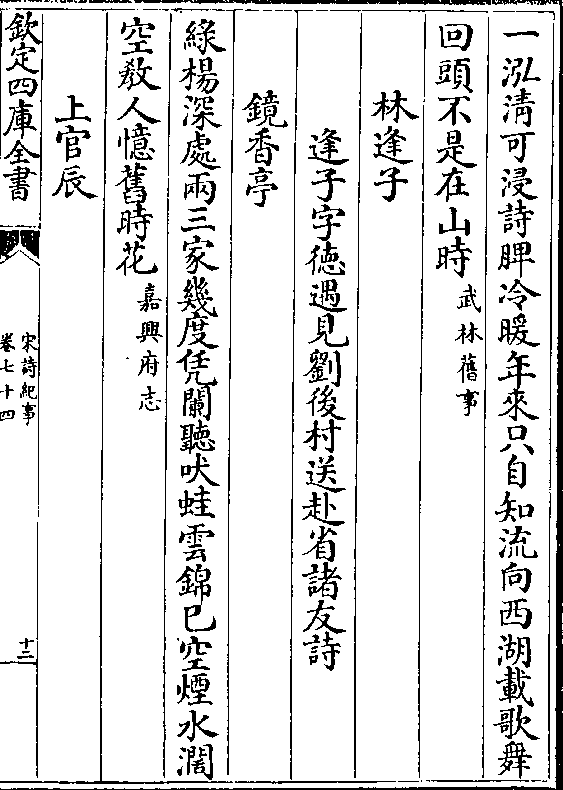 一泓清可浸詩脾冷暖年來只自知流向西湖載歌舞
回頭不是在山時武林舊事
林逢子
逢子字徳遇見劉後村送赴省諸友詩
鏡香亭
緑楊深處兩三家幾度凭闌聽吠蛙雲錦已空煙水濶
空教人憶舊時花嘉興府志
上官辰
欽定四庫全書
宋詩紀事
卷七十四
十二